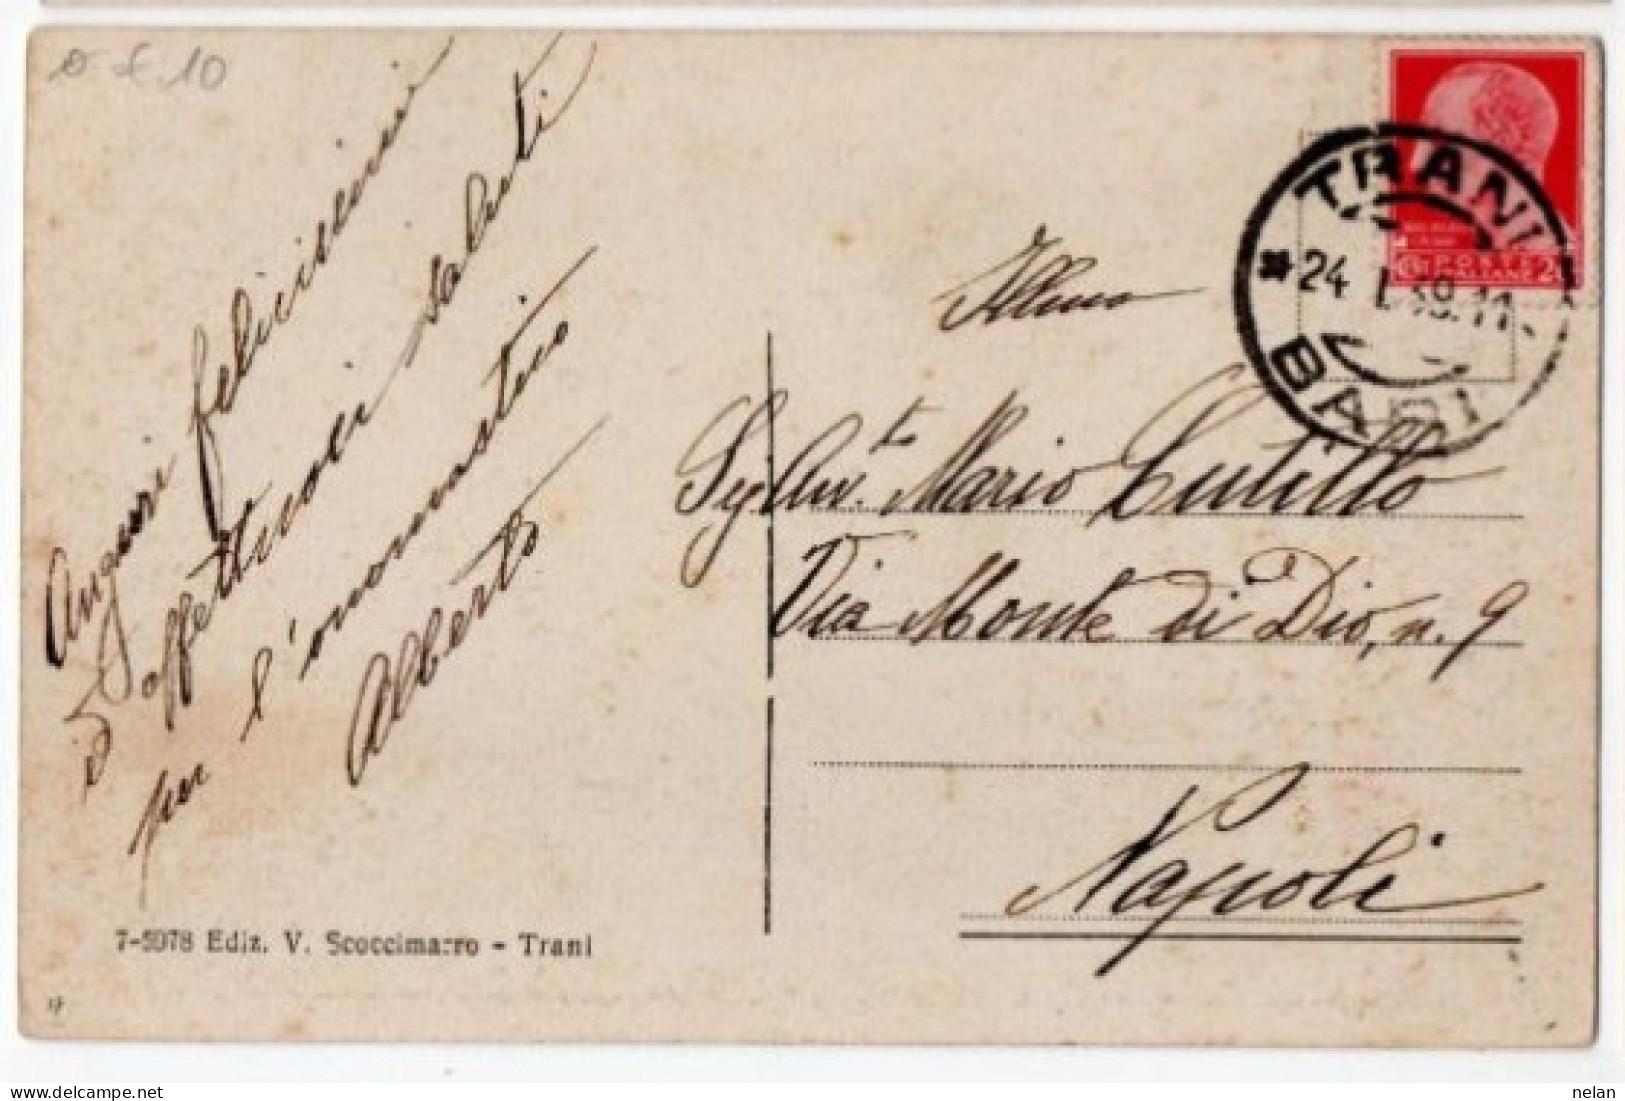 £.10
Auguri felicissimi
ed affettuosi saluti
per l'onomastico
Alberto
TRANI
24 1.39.11
BARI
POSTE
ITALIANE
Illmo
Sig. Avv.t Mario Cutillo
Via Monte di Dio, n. 9
Napoli
7-5978 Ediz. V. Scoccimarro - Trani
nelan